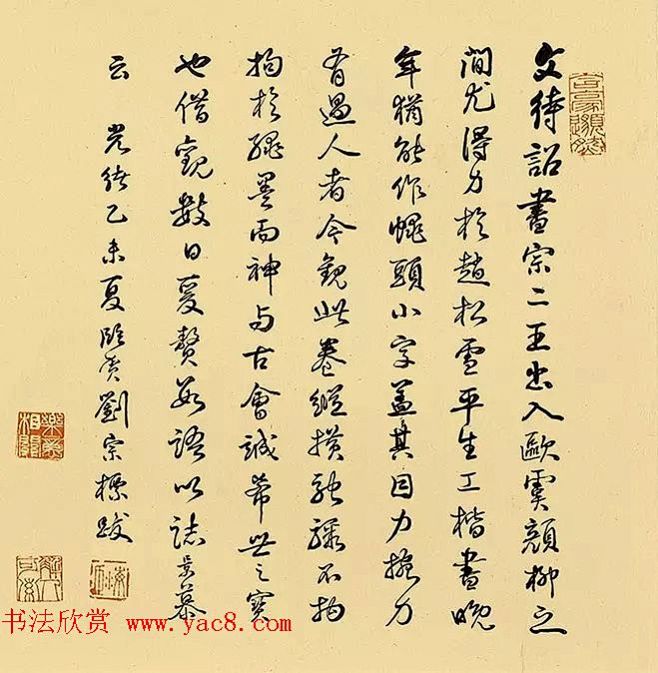 文待詔書宗二王出入歐虞顏柳之
間尤得力於趙松雪平生工楷書晚
年猶能作蠅頭小字蓋其目力掔力
有過人者今觀此卷縱橫馳驟不拘
拘於繩墨而神与古會誠希世之寶
也借觀數日爰贅數語以誌景慕
云 光緒乙未夏臨賀劉宗標跋
书法欣赏 www.yac8.com